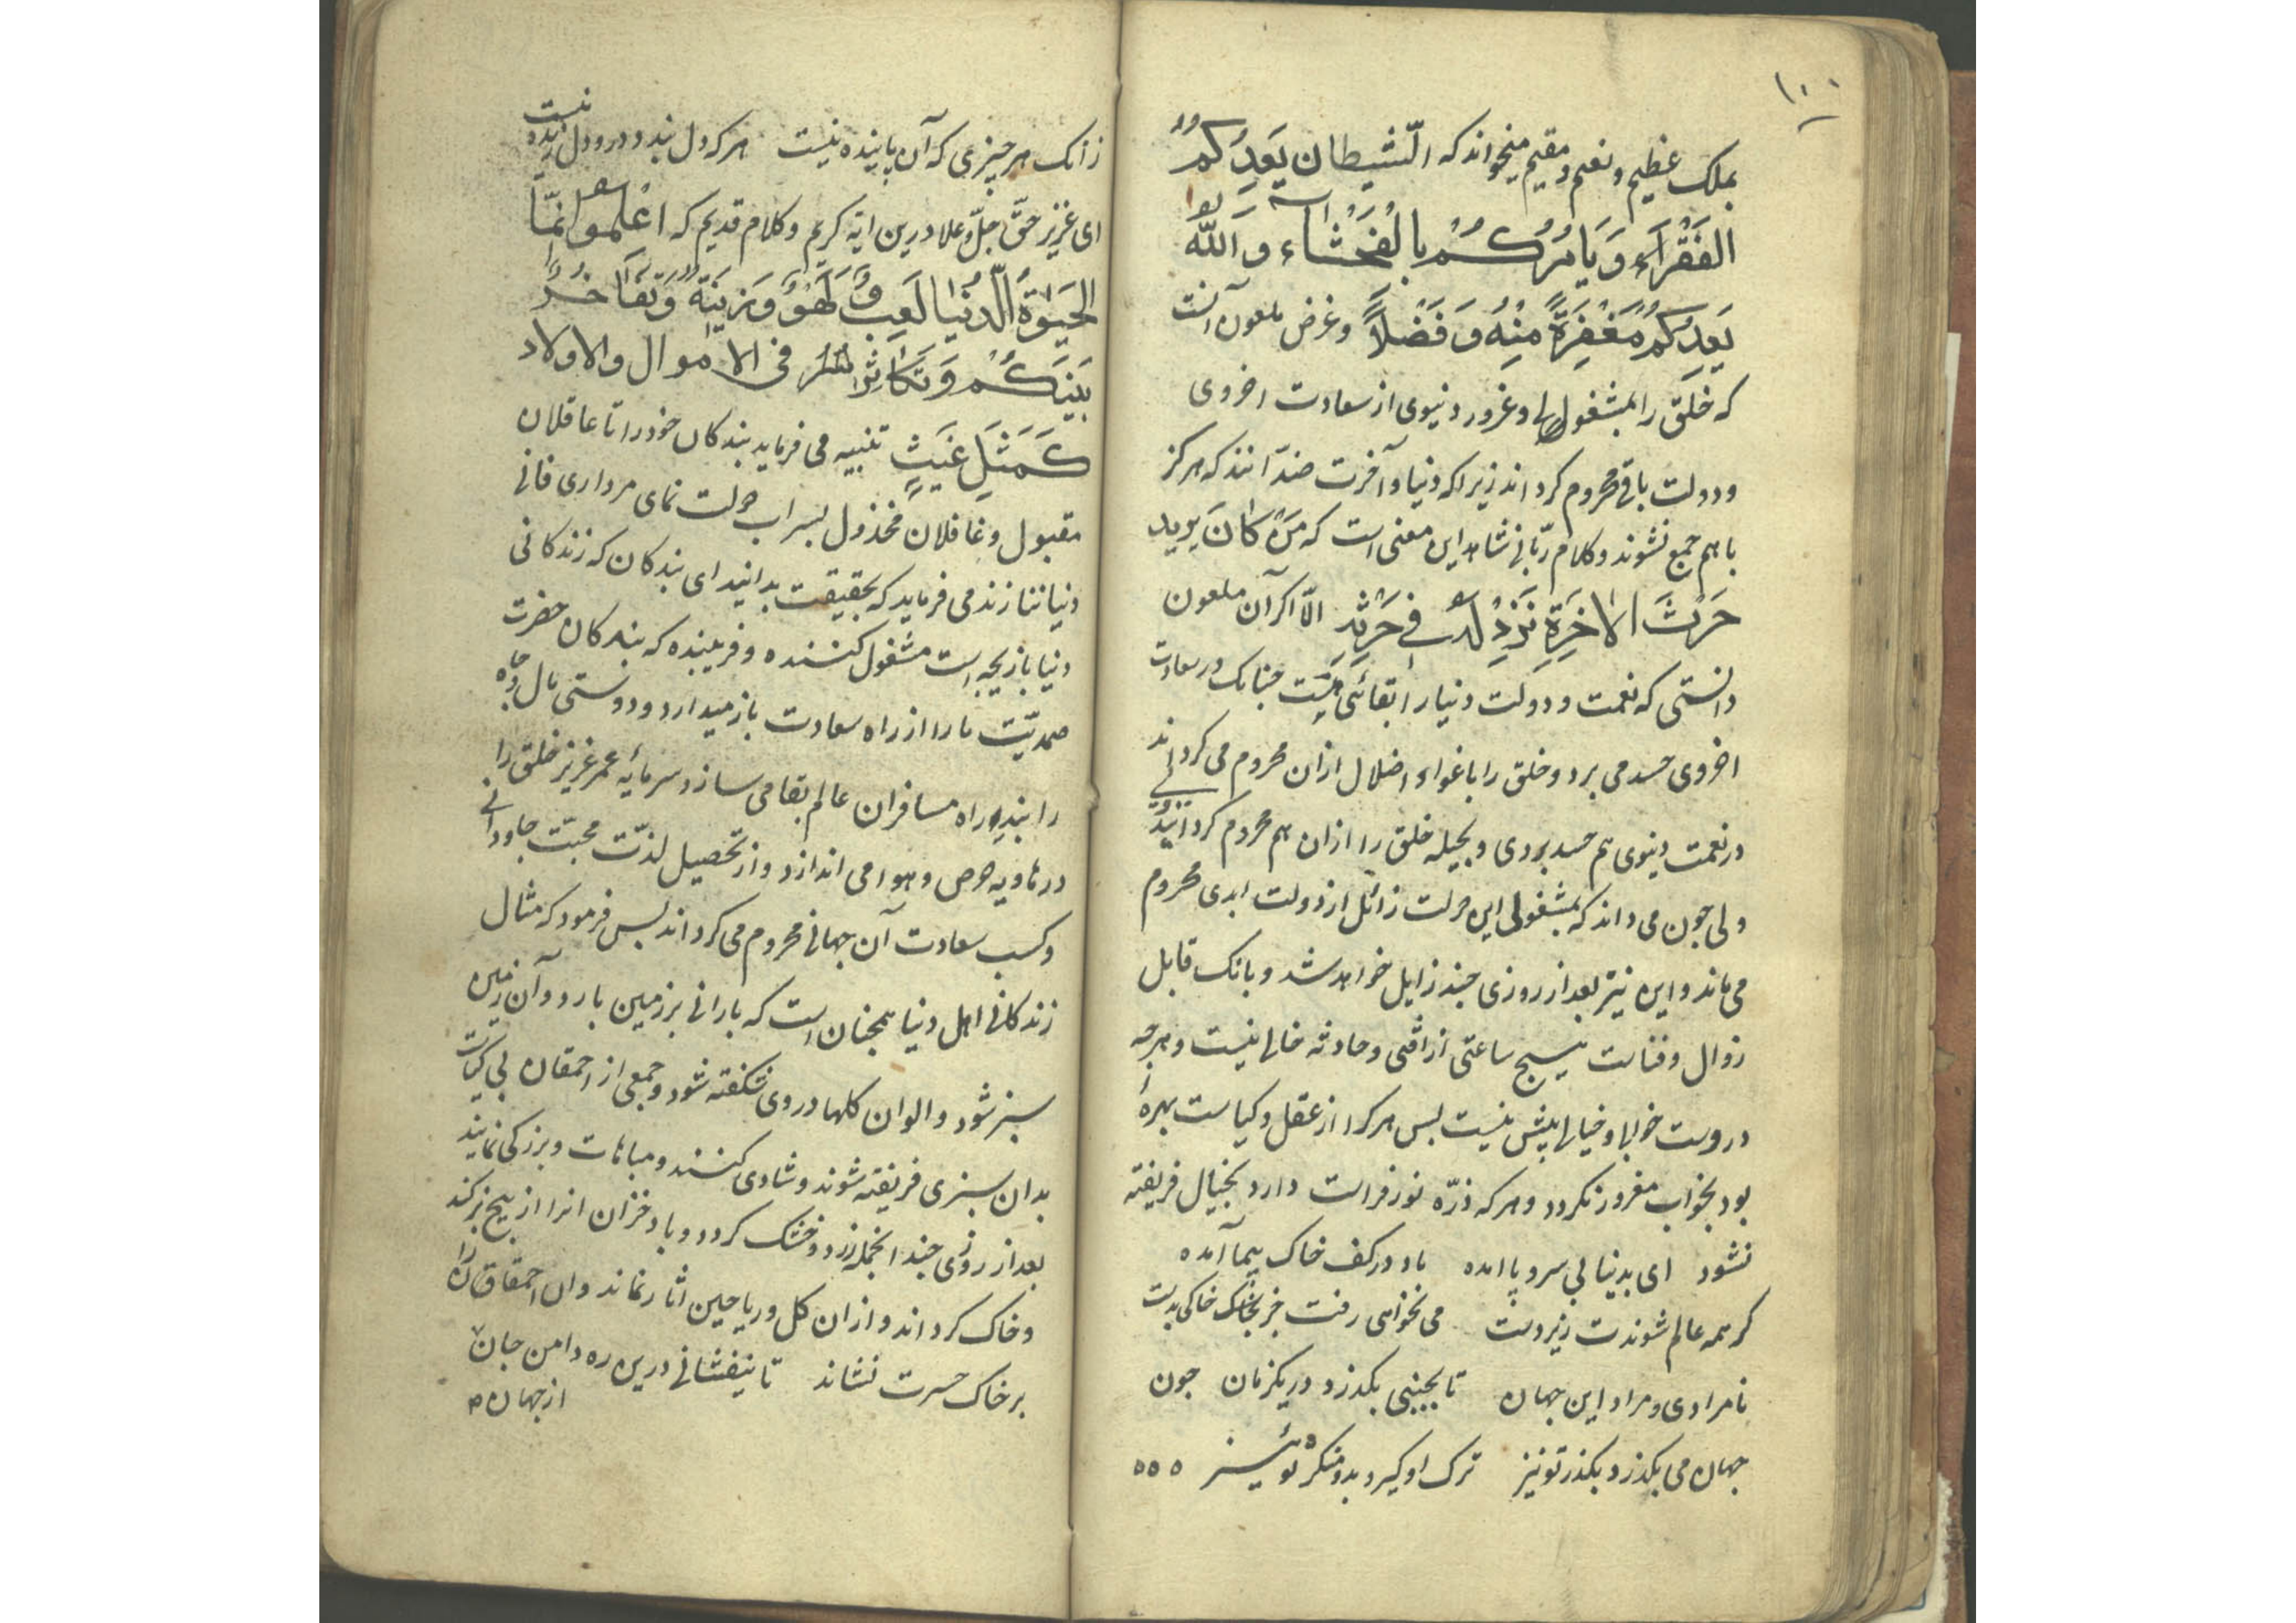 ١٠٠
بملک عظیم و نعیم و مقیم میخواند که الشّیطان یَعِدُکُمُ
الفَقْرَاءَ وَ یَامُرُکُمْ بِالْفَحْشَاء وَ اللّٰه
یَعِدُکُمْ مَغْفِرَةً مِنْهُ وَ فَضْلاً و غرض ملعون آنست
که خلق را بمشغولی و غرور دنیوی از سعادت اخروی
و دولت باقی محروم کرداند زیرا که دنیا و آخرت ضدّانند که هرکز
با هم جمع نشوند و کلام ربّانی شاهد این معنی است که مَنْ کَانَ یرید
حَرْثَ الاخِرَةِ نَزِدْ لَهُ فِی حَرْثِهِ الّا اکر آن ملعون
دانستی که نعمت و دولت دنیا را بقائی هست چنانک در سعادت
اخروی حسد می برد و خلق را باغواء اضلال ازان محروم می کرداند
در نعمت دنیوی هم حسد بردی و بحیله خلق را ازان هم محروم کردانیدی
ولی چون می داند که بمشغولی این دولت زائل از دولت ابدی محروم
می ماند و این نیز بعد از روزی چند زایل خواهد شد و بانک قابل
زوال و فناست هیچ ساعتی از آفتی و حادثه خالی نیست و هرچه
دروست خوابی و خیالی بیش نیست بس هر کرا از عقل و کیاست بهرهٔ
بود بخواب مغرور نکردد و هر که ذرّه نور فراست دارد بخیال فریفته
نشود ای بدنیا بی سر و پا آمده باد در کف خاک پیما آمده
کر همه عالم شوندت زیردست می نخواهی رفت جز خاکی بدست
نامرادی و مراد این جهان تا بجنبی بکذرد در یکزمان چون
جهان می بکذرد بکذر تو نیز ترک او کیر و بدو منکر تو نیز ٥٥٥
زانک هر چیزی که آن پاینده نیست هر که دل بندد درو دل زنده نیست
ای عزیز حقّ جلّ و علا درین ایة کریم و کلام قدیم که اعْلَمُوا اَنَّمَا
الحَیٰوةُ الدُّنیَا لَعِبٌ وَ لَهْوٌ وَ زِینَةٌ وَ تَفَاخُرٌ
بَیْنَکُمْ وَ تَکَاثُرٌ فی الاموال والاولاد
کَمَثَلِ غَیْثٍ تنبیه می فرماید بندکان خود را تا عاقلان
مقبول و غافلان مخذول بسراب دولت نمای مرداری فانی
دنیا ننازند می فرماید که بحقیقت بدانید ای بندکان که زندکانی
دنیا بازیچه است مشغول کننده و فریبنده که بندکان حضرت
صمدیّت ما را از راه سعادت باز میدارد و دوستی مال و جاه
را بند راه مسافران عالم بقا می سازد سرمایه عمر عزیز خلق را
در هاویه حرص و هوا می اندازد و از تحصیل لذّت محبّت جاودانی
و کسب سعادت آن جهانی محروم می کرداند بس فرمود که مثال
زندکانی اهل دنیا همچنان است که بارانی بر زمین بارد و آن زمین
سبز شود و الوان کلها در وی شکفته شود و جمعی از احمقان بی کیاست
بدان سبزی فریفته شوند و شادی کنند و مباهات و بزرکی نمایند
بعد از روزی چند انجمله زرد و خشک کردد و باد خزان انرا از بیخ برکند
و خاک کرداند و ازان کل و ریاحین اثار نماند و ان احمقان را
بر خاک حسرت نشاند تا نیفشانی درین ره دامن جان
از جهان